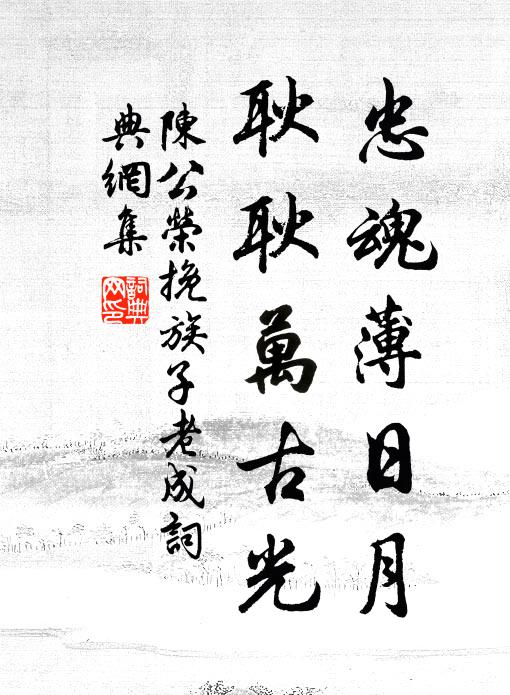 忠魂薄日月
耿耿萬古光
陳公榮挽族子老成詞
典網集
詞典网印